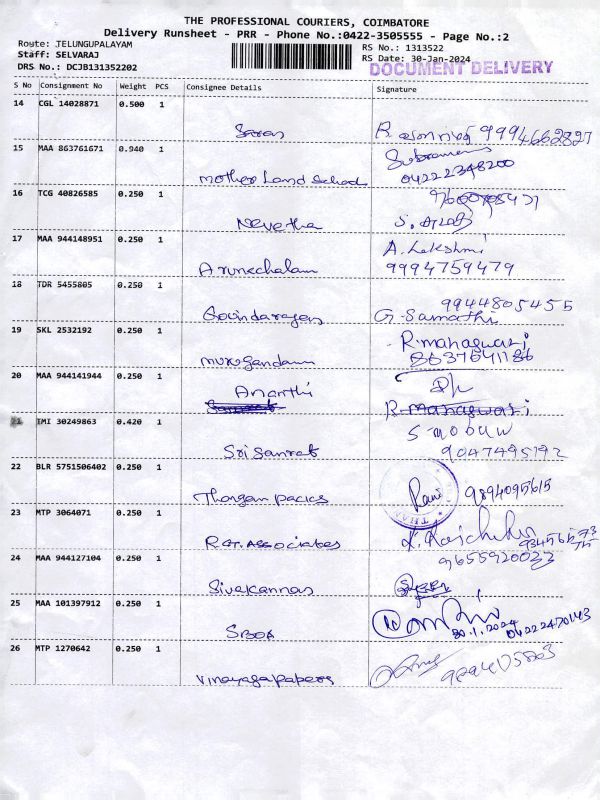 THE PROFESSIONAL COURIERS, COIMBATORE
Delivery Runsheet - PRR - Phone No.:0422-3505555 - Page No.:2
Route: TELUNGUPALAYAM RS No.: 1313522
Staff: SELVARAJ RS Date: 30-Jan-2024
DRS No.: DCJB131352202 DOCUMENT DELIVERY
S No Consignment No Weight PCS Consignee Details Signature
14 CGL 14028871 0.500 1
Saran R. 9994662827
15 MAA 863761671 0.940 1
Mother Land School 04222348200
16 TCG 40826585 0.250 1
Nevetha S.
17 MAA 944148951 0.250 1 A. Lakshmi
Arunachalam 9994759479
18 TDR 5455805 0.250 1 9944805455
Govindarajan G. Samathi
19 SKL 2532192 0.250 1 R. mahaswari
murugandam 8637641186
20 MAA 944141944 0.250 1
Ananthi
R. mahaswari
21 IMI 30249863 0.420 1
Sri Sanrab 9047495192
22 BLR 5751506402 0.250 1
Thangam pacics Rani 9894095615
23 MTP 3064071 0.250 1
RGT. Associates
24 MAA 944127104 0.250 1 9655920033
Sivakannan
25 MAA 101397912 0.250 1
SBOA 30.1.2024 04222470143
26 MTP 1270642 0.250 1
Vinayaga papers